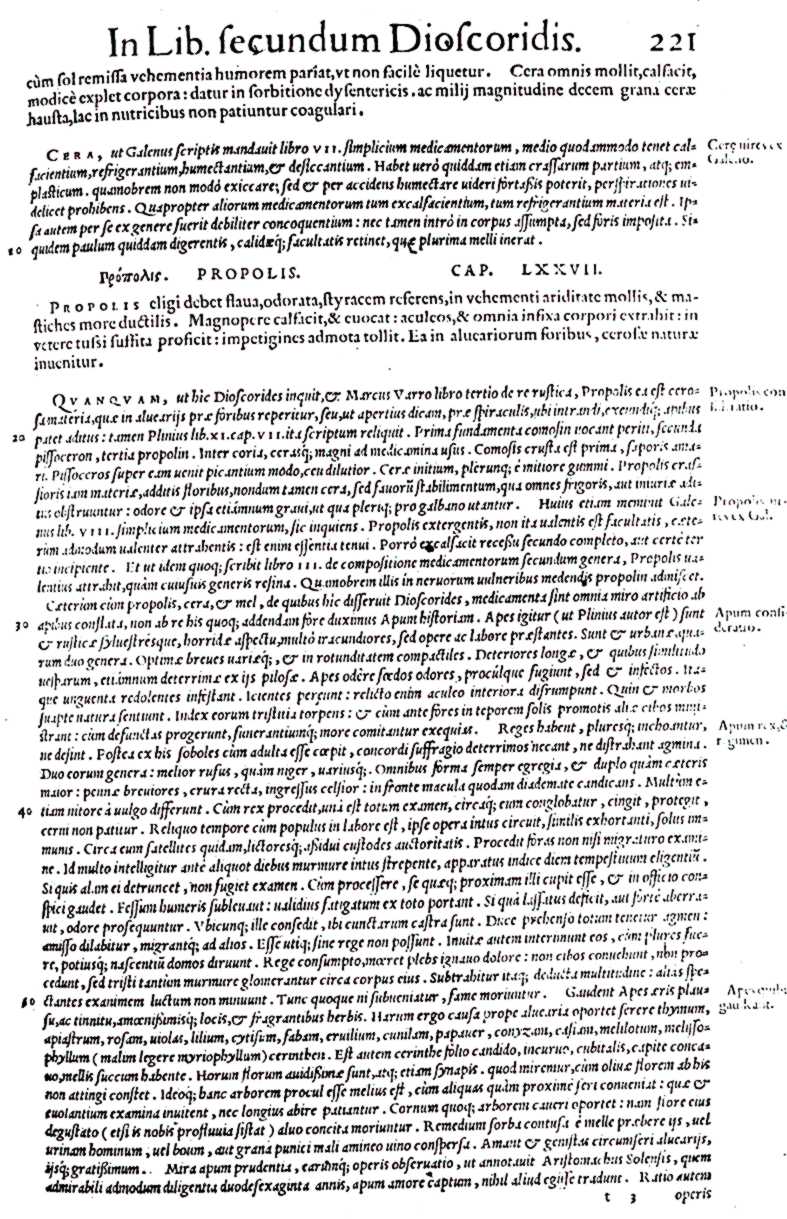 In Lib. ſecundum Dioſcoridis. 221
cùm ſol remiſſa vehementia humorem pariat, vt non facilè liquetur. Cera omnis mollit, calfacit,
modicè explet corpora: datur in ſorbitione dyſentericis. ac milij magnitudine decem grana ceræ
hauſta, lac in nutricibus non patiuntur coagulari.
CERA, ut Galenus ſcriptis mandauit libro VII. ſimplicium medicamentorum, medio quodammodo tenet cal-
facientium, refrigerantium, humectantium, & deſiccantium. Habet uerò quiddam etiam craſſarum partium, atq; em-
plaſticum. quamobrem non modò exiccare; ſed & per accidens humectare uideri fortaſſis poterit, perſpirationes ui-
delicet prohibens. Quapropter aliorum medicamentorum tum excalfacientium, tum refrigerantium materia eſt. Ip-
ſa autem per ſe ex genere fuerit debiliter concoquentium: nec tamen intrò in corpus aſſumpta, ſed foris impoſita. Si-
10 quidem paulum quiddam digerentis, calidæq; facultatis retinet, quę plurima melli inerat.
Cerę uires ex
Galeno.
Πρόπολις. PROPOLIS. CAP. LXXVII.
PROPOLIS eligi debet flaua, odorata, ſtyracem referens, in vehementi ariditate mollis, & ma-
ſtiches more ductilis. Magnopere calfacit, & euocat: aculeos, & omnia infixa corpori extrahit: in
vetere tuſsi ſuffita proficit: impetigines admota tollit. Ea in alueariorum foribus, ceroſæ naturæ
inuenitur.
QVANQVAM, ut hic Dioſcorides inquit, & Marcus Varro libro tertio de re ruſtica, Propolis ea eſt cero-
ſa materia, quæ in aluearijs præ foribus reperitur, ſeu, ut apertius dicam, præ ſpiraculis, ubi intrandi, exeundiq; apibus
20 patet aditus: tamen Plinius lib. XI. cap. VII. ita ſcriptum reliquit. Prima fundamenta comoſin uocant periti, ſecunda
piſſoceron, tertia propolin. Inter coria, cerasq; magni ad medicamina uſus. Comoſis cruſta eſt prima, ſaporis ama-
ri. Piſſoceros ſuper eam uenit picantium modo, ceu dilutior. Ceræ initium, plerunq; è mitiore gummi. Propolis craſ-
ſioris iam materiæ, additis floribus, nondum tamen cera, ſed fauorū ſtabilimentum, qua omnes frigoris, aut iniuriæ adi-
tus obſtruuntur: odore & ipſa etiamnum graui, ut qua pleriq; pro galbano utantur. Huius etiam meminit Gale-
nus lib. VIII. ſimplicium medicamentorum, ſic inquiens. Propolis extergentis, non ita ualentis eſt facultatis, cæte-
rùm admodum ualenter attrahentis: eſt enim eſſentia tenui. Porrò excalfacit receſſu ſecundo completo, aut certè ter-
tio incipiente. Et ut idem quoq; ſcribit libro III. de compoſitione medicamentorum ſecundum genera, Propolis ua-
lentius attrahit, quàm cuiuſuis generis reſina. Quamobrem illis in neruorum uulneribus medendis propolin admiſcet.
Propolis con
ſideratio.
Propolis ui-
res ex Gal.
Cæterùm cùm propolis, cera, & mel, de quibus hic diſſeruit Dioſcorides, medicamenta ſint omnia miro artificio ab
30 apibus conflata, non ab re his quoq; addendam fore duximus Apum hiſtoriam. Apes igitur (ut Plinius autor eſt) ſunt
& ruſticæ ſylueſtresque, horridæ aſpectu, multò iracundiores, ſed opere ac labore præſtantes. Sunt & urbanæ, qua-
rum duo genera. Optimæ breues uariæq;, & in rotunditatem compactiles. Deteriores longæ, & quibus ſimilitudo
ueſparum, etiamnum deterrimæ ex ijs piloſæ. Apes odere fœdos odores, procúlque fugiunt, ſed & infectos. Ita-
que unguenta redolentes infeſtant. Icientes pereunt: relicto enim aculeo interiora diſrumpunt. Quin & morbos
ſuapte natura ſentiunt. Index eorum triſtitia torpens: & cùm ante fores in teporem ſolis promotis aliæ cibos mini-
ſtrant: cùm defunctas progerunt, funerantiumq; more comitantur exequias. Reges habent, pluresq; inchoantur,
ne deſint. Poſtea ex his ſoboles cùm adulta eſſe cœpit, concordi ſuffragio deterrimos necant, ne diſtrahant agmina.
Duo eorum genera: melior rufus, quàm niger, uariusq;. Omnibus forma ſemper egregia, & duplo quàm cæteris
maior: pennæ breuiores, crura recta, ingreſſus celſior: in fronte macula quodam diademate candicans. Multùm e-
40 tiam nitore à uulgo differunt. Cùm rex procedit, unà eſt totum examen, circaq; eum conglobatur, cingit, protegit,
cerni non patitur. Reliquo tempore cùm populus in labore eſt, ipſe opera intus circuit, ſimilis exhortanti, ſolus im-
munis. Circa eum ſatellites quidam, lictoresq; aſsidui cuſtodes auctoritatis. Procedit foras non niſi migraturo exami-
ne. Id multo intelligitur antè aliquot diebus murmure intus ſtrepente, apparatus indice diem tempeſtiuum eligentiū.
Si quis alam ei detruncet, non fugiet examen. Cùm proceſſere, ſe quæq; proximam illi cupit eſſe, & in officio con-
ſpici gaudet. Feſſum humeris ſubleuant: ualidius fatigatum ex toto portant. Si qua laſſatus deficit, aut fortè aberra-
uit, odore proſequuntur. Vbicunq; ille conſedit, ibi cunctarum caſtra ſunt. Duce prehenſo totum tenetur agmen:
amiſſo dilabitur, migrantq; ad alios. Eſſe utiq; ſine rege non poſſunt. Inuitæ autem interimunt eos, cùm plures fue-
re, potiusq; naſcentiū domos diruunt. Rege conſumpto, mœret plebs ignauo dolore: non cibos conuehunt, non pro-
cedunt, ſed triſti tantùm murmure glomerantur circa corpus eius. Subtrahitur itaq; deducta multitudine: aliàs ſpe-
50 ctantes exanimem luctum non minuunt. Tunc quoque ni ſubueniatur, fame moriuntur. Gaudent Apes æris plau-
ſu, ac tinnitu, amœniſsimisq; locis, & fragrantibus herbis. Harum ergo cauſa prope aluearia oportet ſerere thymum,
apiaſtrum, roſam, uiolas, lilium, cytiſum, fabam, eruilium, cunilam, papauer, conyzam, caſiam, melilotum, meliſſo-
phyllum (malim legere myriophyllum) cerinthen. Eſt autem cerinthe folio candido, incuruo, cubitalis, capite conca-
uo, mellis ſuccum habente. Horum florum auidiſsimæ ſunt, atq; etiam ſynapis. quod miremur, cùm oliuæ florem ab his
non attingi conſtet. Ideoq; hanc arborem procul eſſe melius eſt, cùm aliquas quàm proximè ſeri conueniat: quæ &
euolantium examina inuitent, nec longius abire patiantur. Cornum quoq; arborem caueri oportet: nam flore eius
deguſtato (etſi is nobis profluuia ſiſtat) aluo concita moriuntur. Remedium ſorba contuſa è melle præbere ijs, uel
urinam hominum, uel boum, aut grana punici mali amineo uino conſperſa. Amant & geniſtas circumſeri aluearijs,
ijsq; gratiſsimum. Mira apum prudentia, earūmq; operis obſeruatio, ut annotauit Ariſtomachus Solenſis, quem
admirabili admodum diligentia duodeſexaginta annis, apum amore captum, nihil aliud egiſſe tradunt. Ratio autem
Apum conſi
deratio.
Apum rex, &
regimen.
Apes quibus
gaudeant.
t 3 operis